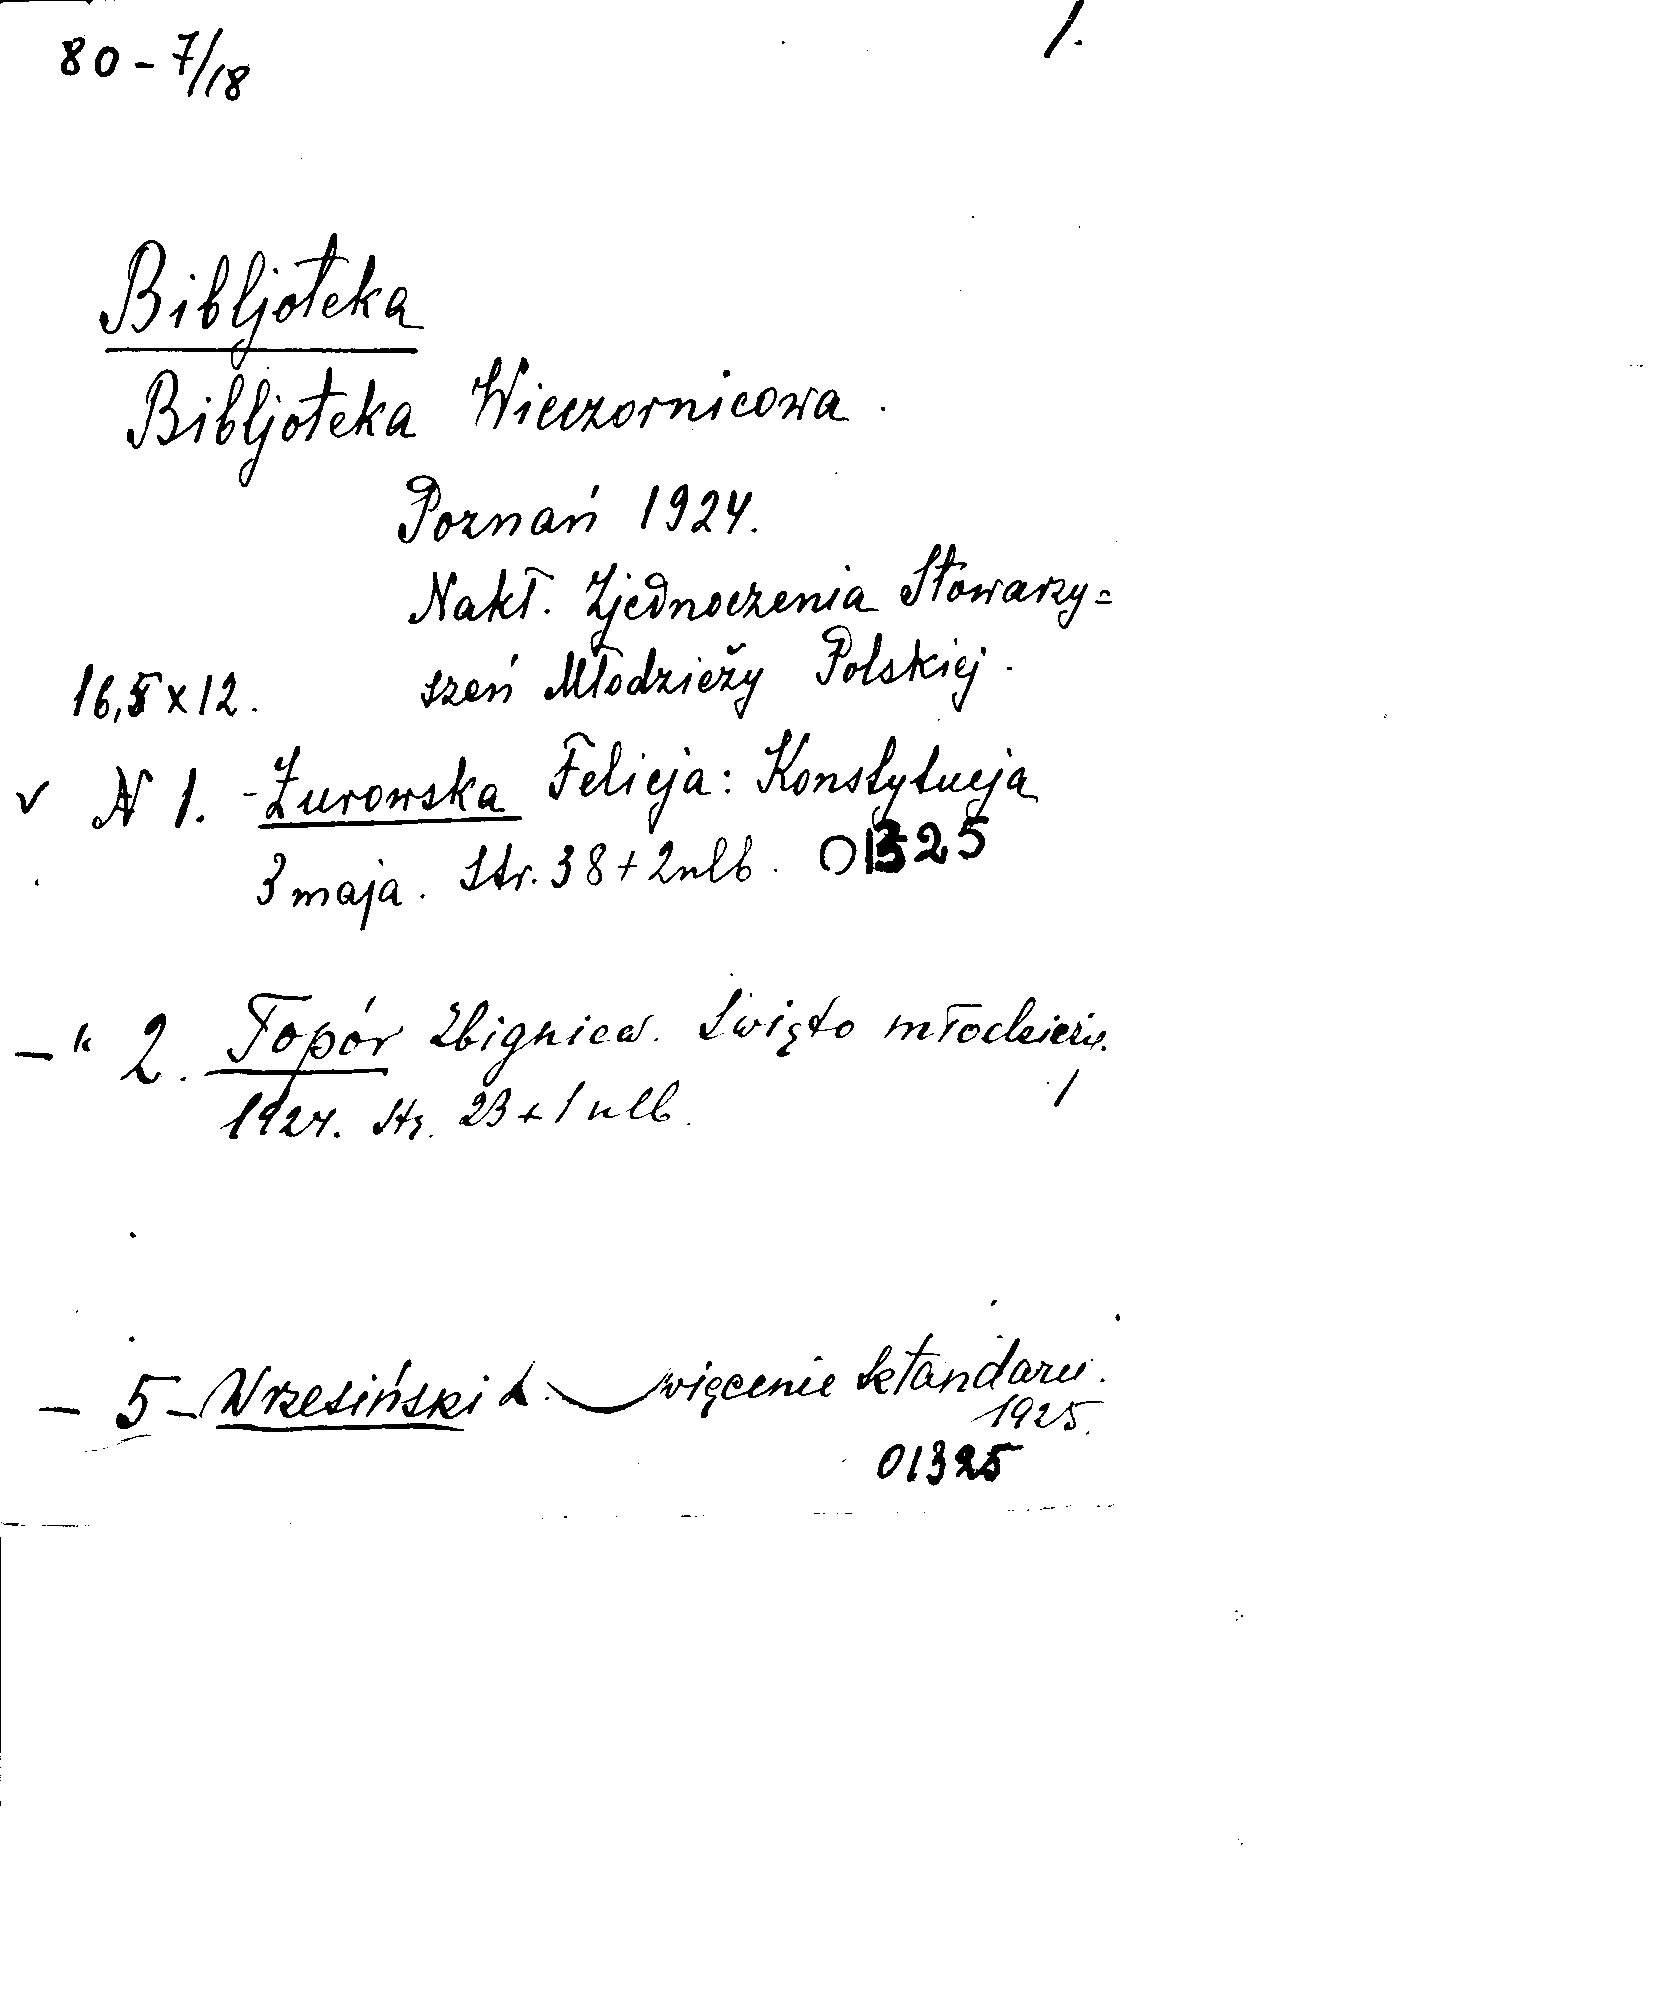 80 - 7/18
1.
Bibljoteka
Bibljoteka Wieczornicowa.
Poznań 1924.
Nakł. Zjednoczenia Stowarzy=
16,5 x 12. szeń Młodzieży Polskiej.
v N 1. - Żurowska Felicja: Konstytucja
3 maja. Str. 38 + 2 nlb. 01325
- " 2. Topór Zbigniew. Święto młodzieży.
1924. Str. 23 + 1 nlb. 1
- 5 - Wrzesiński L. więcenie sztandaru.
1925.
01325